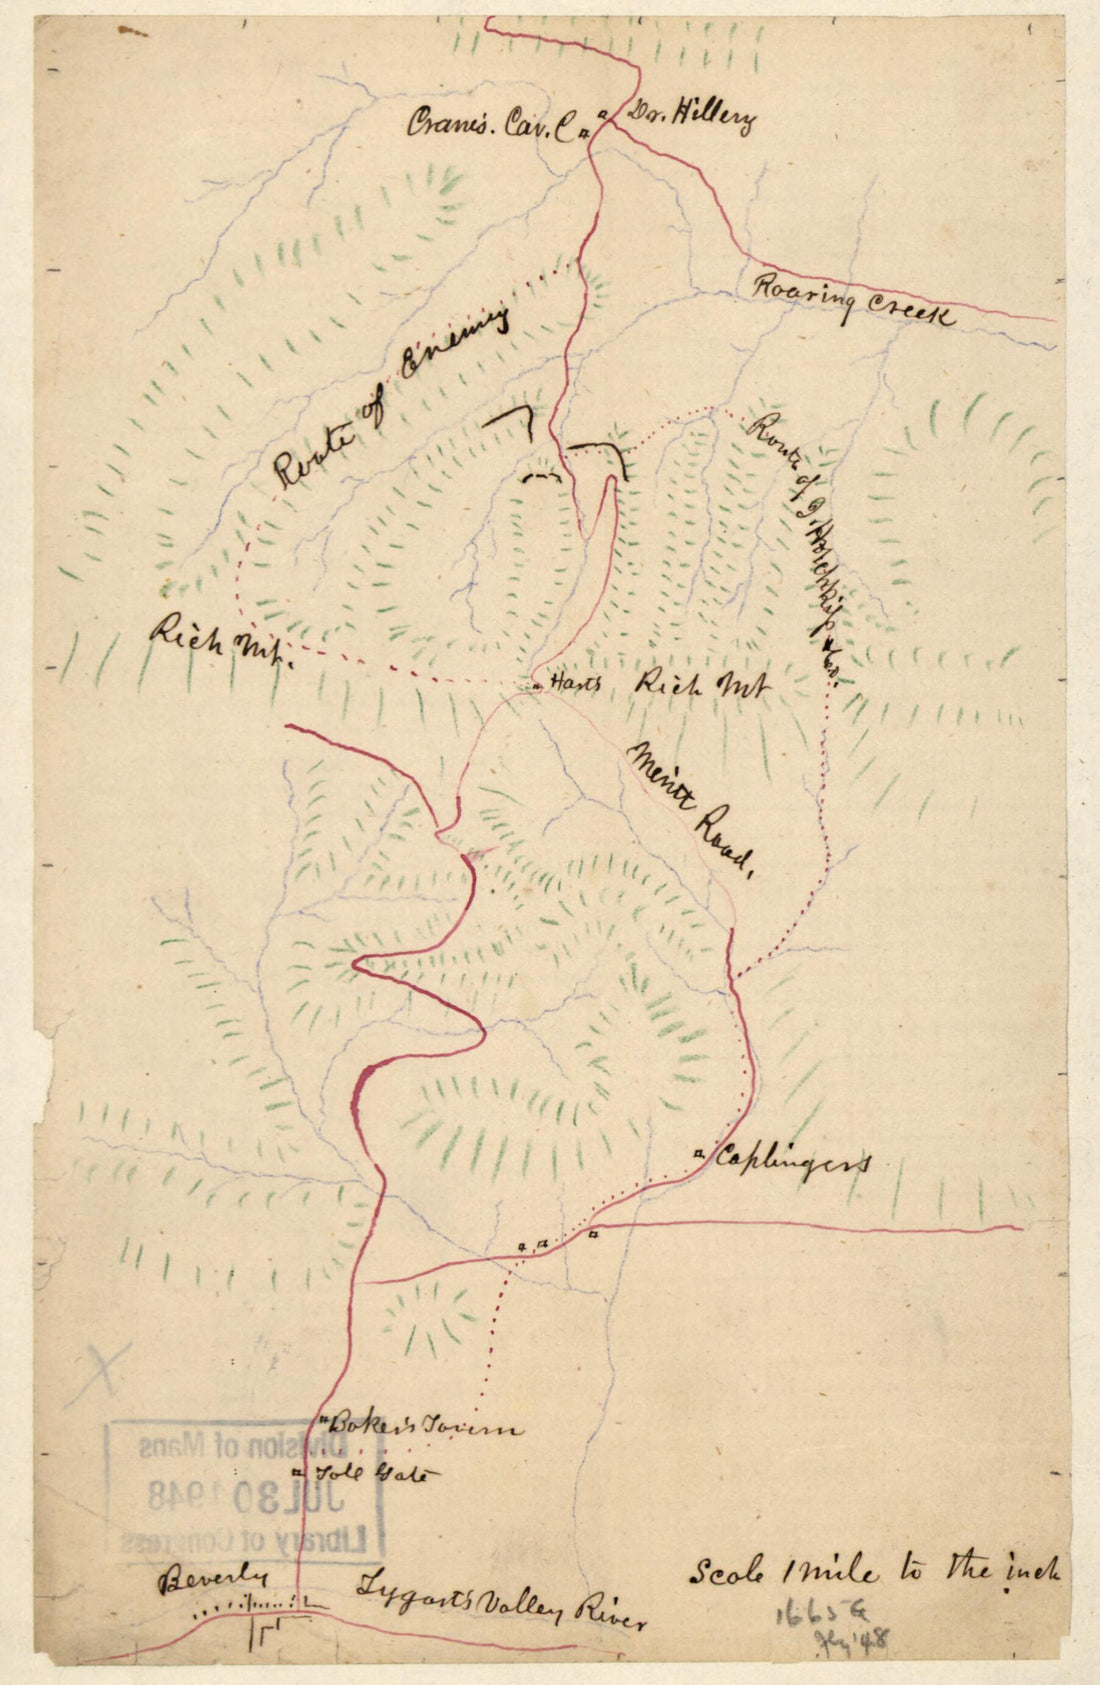 Dr. Hillery
Crane's. Cav. C
Roaring Creek
Route of Enemy
Route of J. Hotchkiss &co.
Rich Mt.
Harts
Rich Mt
Meritt Road.
Caplingers
Baker's Tavern
Toll Gate
Division of Maps
JUL 30 1948
Library of Congress
Beverly
Tygart's Valley River
Scale 1 mile to the inch
1665 G